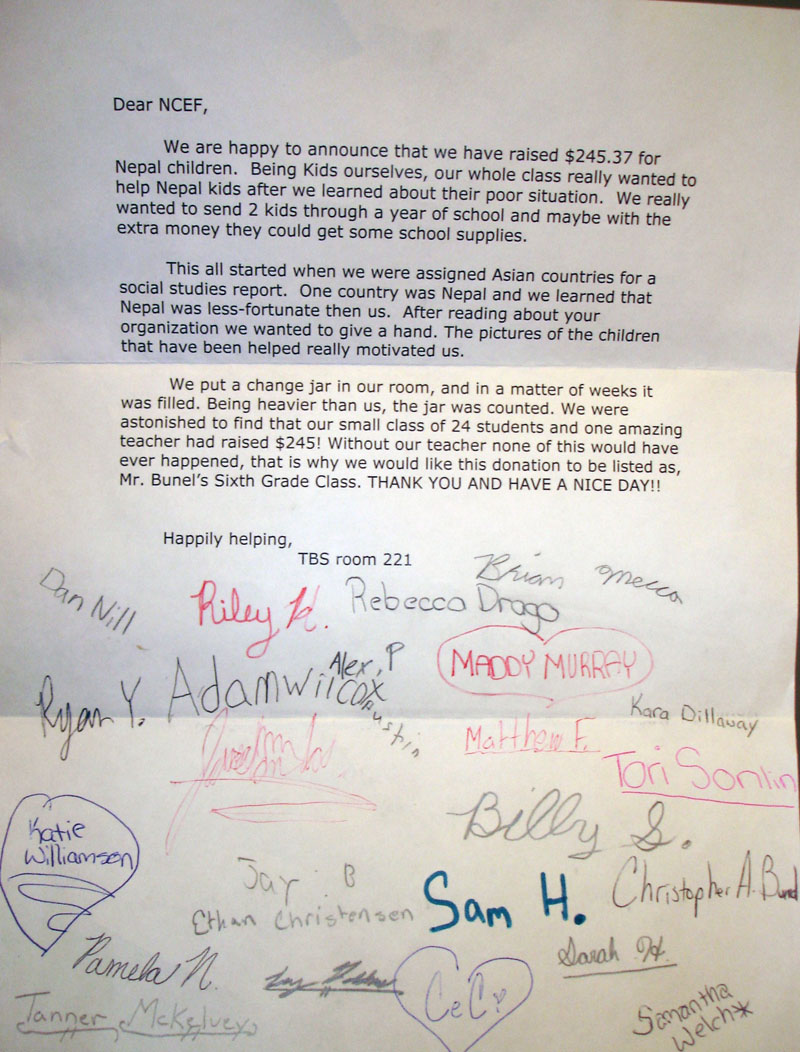 Dear NCEF,
We are happy to announce that we have raised $245.37 for
Nepal children.  Being Kids ourselves, our whole class really wanted to
help Nepal kids after we learned about their poor situation.  We really
wanted to send 2 kids through a year of school and maybe with the
extra money they could get some school supplies.
This all started when we were assigned Asian countries for a
social studies report.  One country was Nepal and we learned that
Nepal was less-fortunate then us.  After reading about your
organization we wanted to give a hand. The pictures of the children
that have been helped really motivated us.
We put a change jar in our room, and in a matter of weeks it
was filled. Being heavier than us, the jar was counted. We were
astonished to find that our small class of 24 students and one amazing
teacher had raised $245! Without our teacher none of this would have
ever happened, that is why we would like this donation to be listed as,
Mr. Bunel's Sixth Grade Class. THANK YOU AND HAVE A NICE DAY!!
Happily helping,
TBS room 221
Dan Nill
Brian Mecca
Riley K.
Rebecca Drago
Alex, P
MADDY MURRAY
Ryan Y.
Adam wilcox
Austin
Kara Dillaway
Matthew F.
Tori Sonlin
Billy S.
Katie
Williamsen
Jay B
Ethan Christensen
Sam H.
Christopher A.
Pamela N.
Sarah H.
CeCi
Tanner McKelvey
Samantha
Welch*